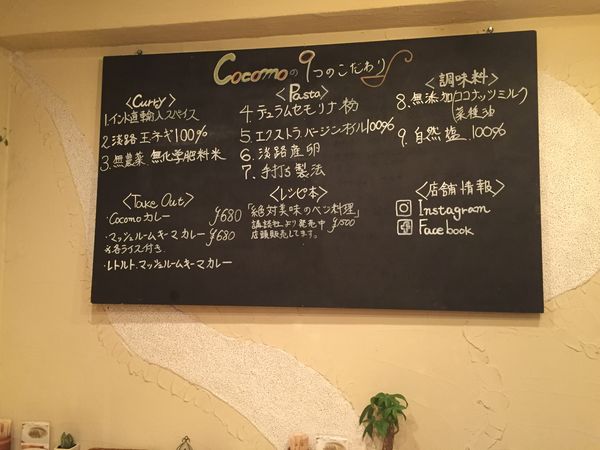 Cocomoの9つのこだわり
<Curry>
1.インド直輸入スパイス
2.淡路玉ネギ100%
3.無農薬 無化学肥料米
<Pasta>
4.デュラムセモリナ粉
5.エクストラバージンオイル100%
6.淡路産卵
7.手打ち製法
<調味料>
8.無添加ココナッツミルク
菜種油
9.自然塩 100%
<Take Out>
・Cocomoカレー ¥680
・マッシュルームキーマカレー ¥680
※各ライス付き
・レトルト・マッシュルームキーマカレー
<レシピ本>
「絶対美味のペン料理」
講談社より発売中 ¥1500
店頭販売してます。
<店舗情報>
Instagram
Facebook